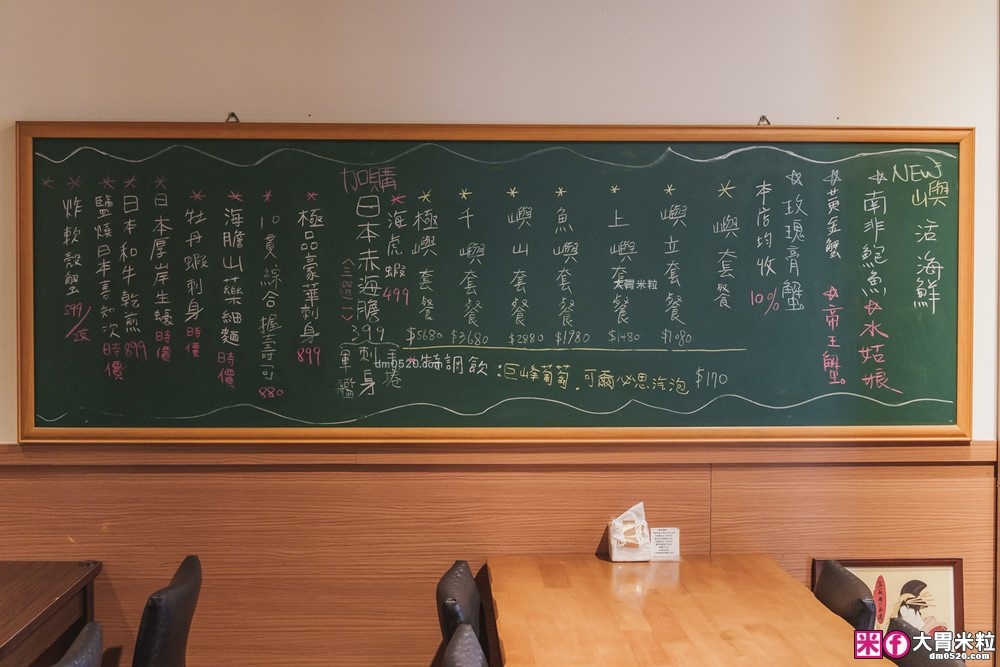 NEW
嶼活海鮮
☆南非鮑魚☆水姑娘
☆黃金蟹 ☆帝王蟹
☆玫瑰膏蟹
本店均收10%
*嶼套餐
*嶼立套餐 $1080
*上嶼套餐 $1480
*魚嶼套餐 $1780
*嶼山套餐 $2880
*千嶼套餐 $3680
*極嶼套餐 $5680
*特調飲:巨峰葡萄.可爾必思汽泡 $170
加購
*海虎蝦 499
日本赤海膽 399
〈三選一〉
手捲
刺身
軍艦
*極品豪華刺身 899
*10貫綜合握壽司 880
*海膽山藥細麵 時價
*牡丹蝦刺身 時價
*日本厚岸生蠔 時價
*日本和牛乾煎 899
*鹽燒日本喜知次 時價
*炸軟殼蟹 599/2隻
大胃米粒
dm0520.com
米 f 大胃米粒
dm0520.com